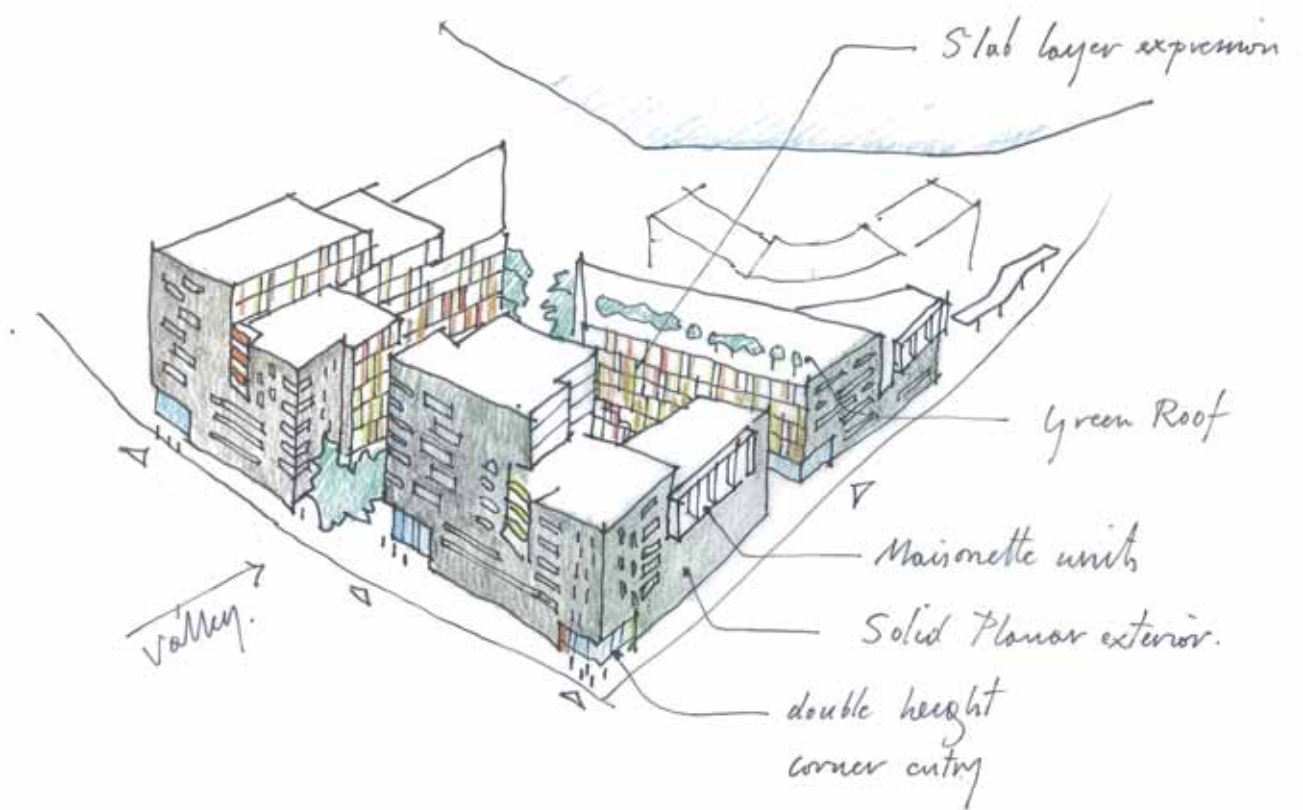 Slab layer expression
Green Roof
Maisonette units
Solid Planar exterior.
double height
corner entry
valley.